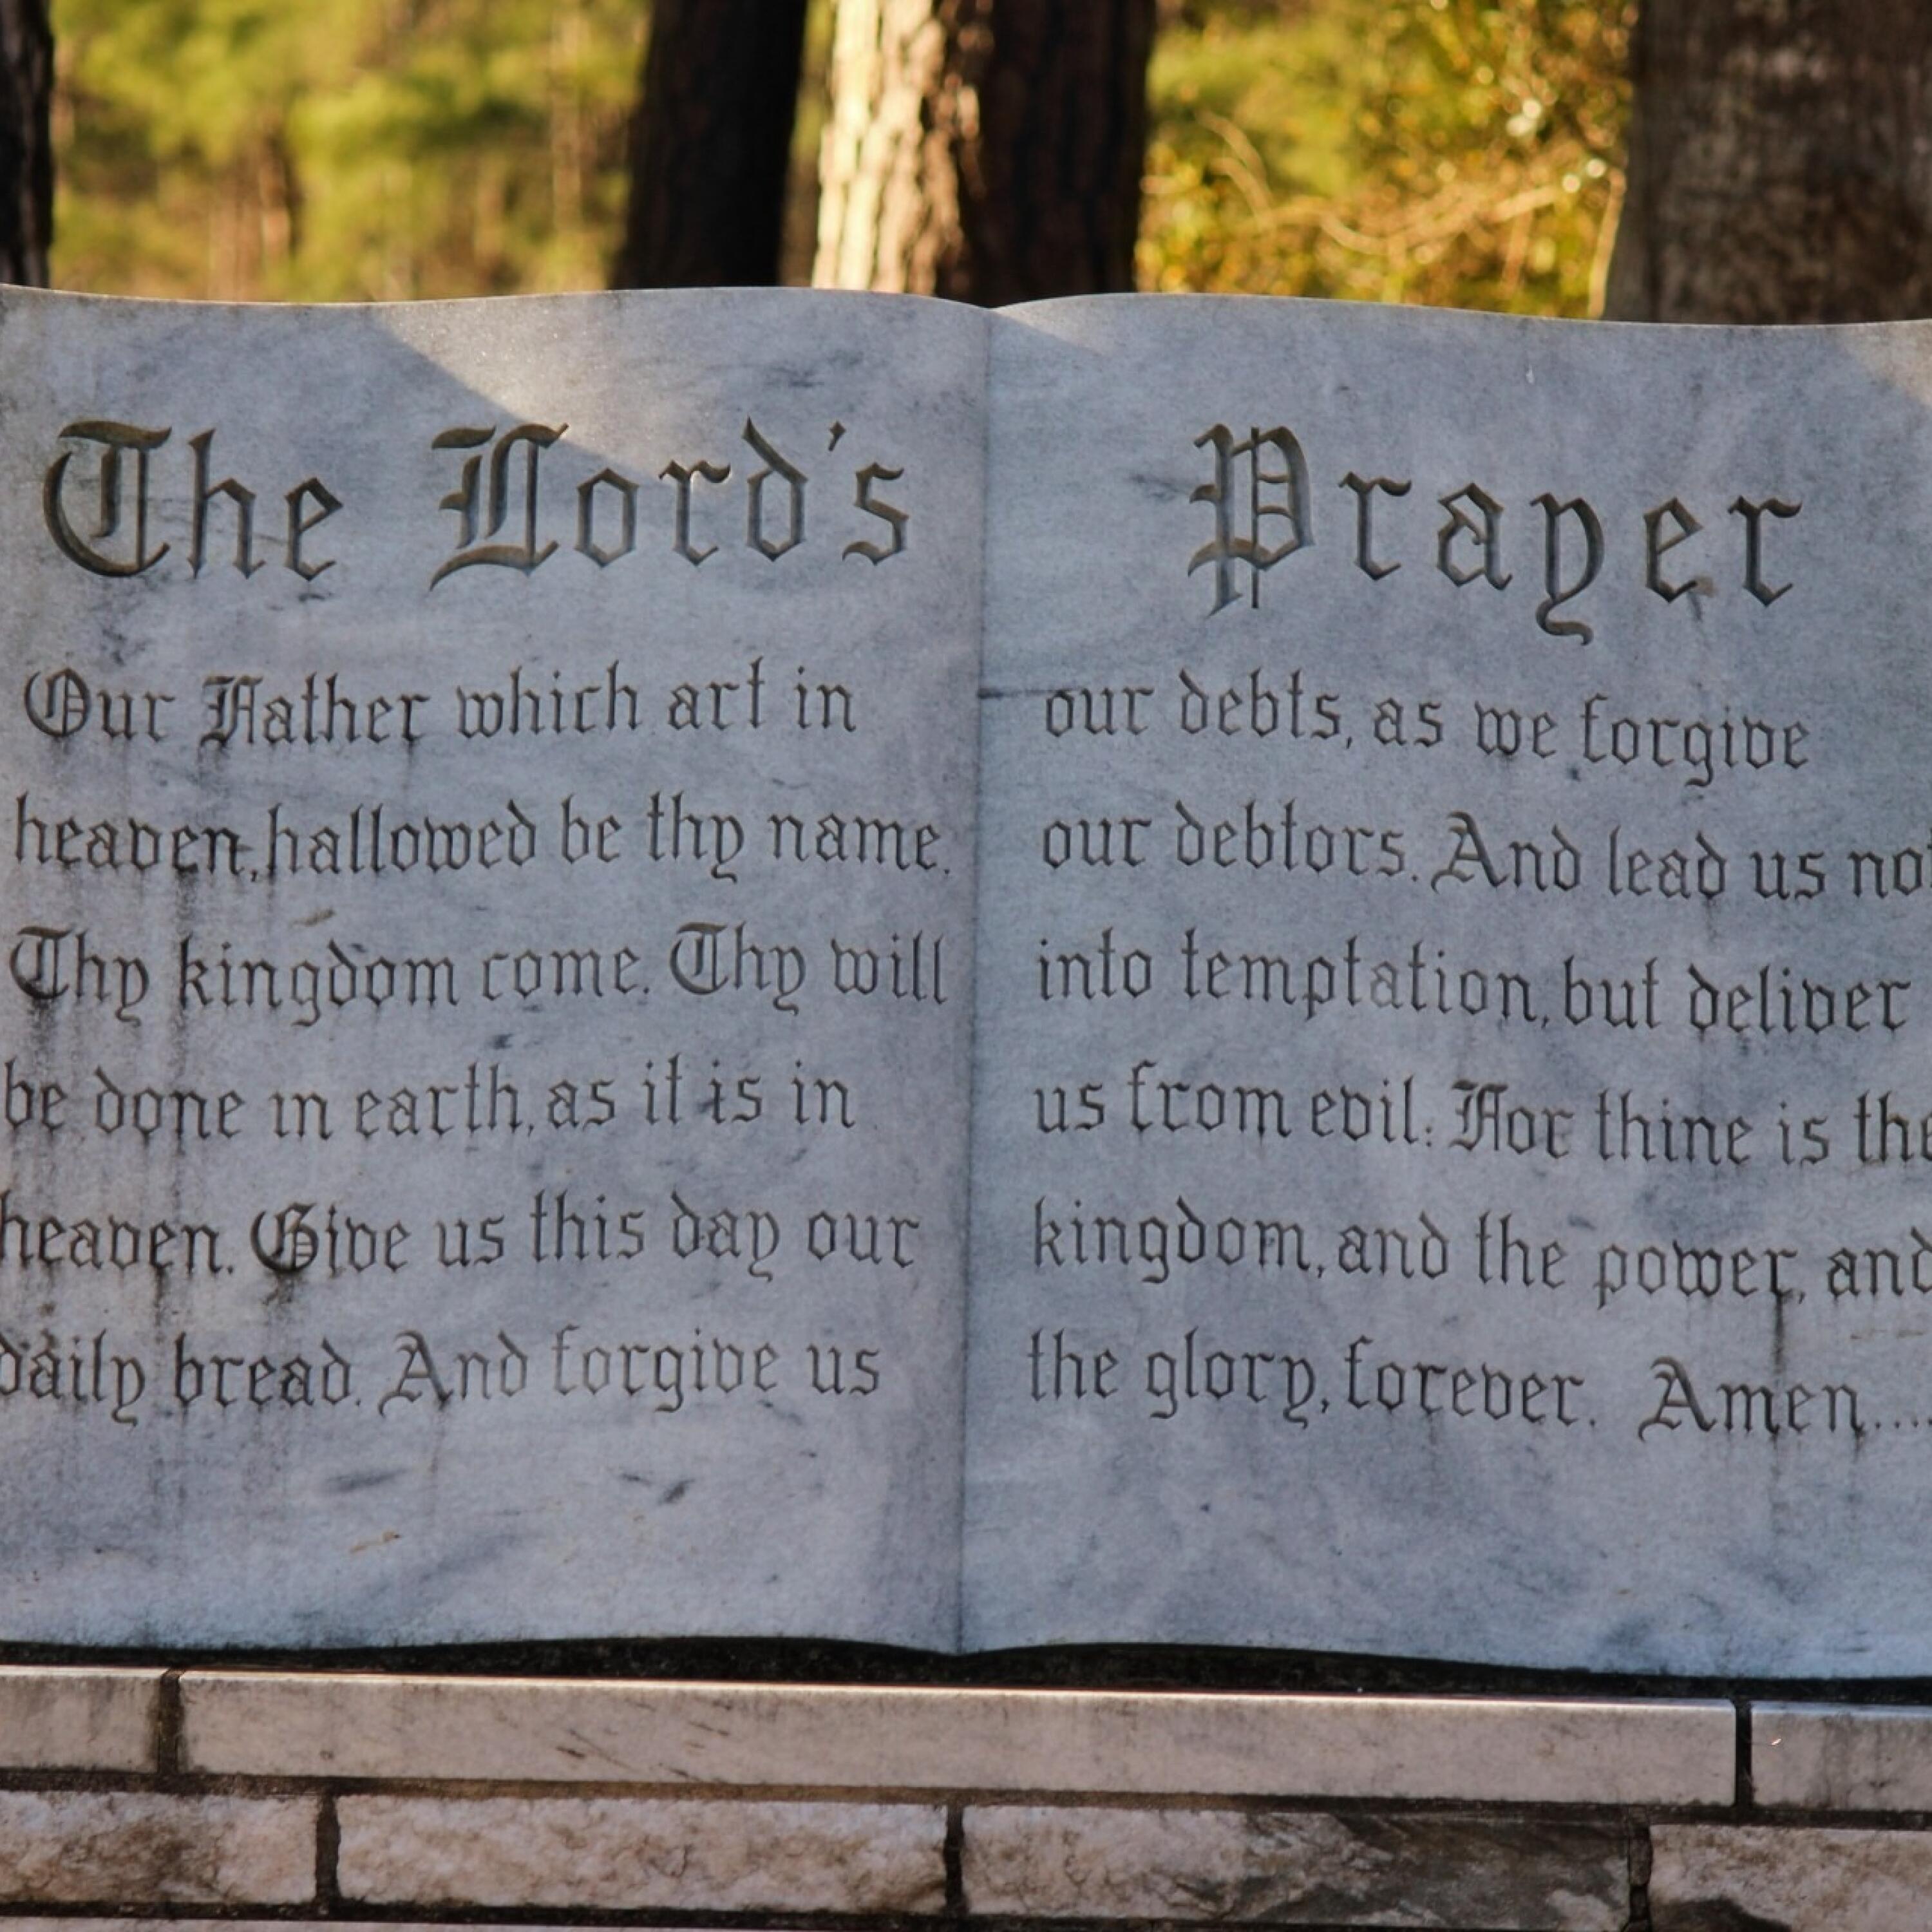 The Lord's Prayer
Our Father which art in
heaven, hallowed be thy name.
Thy kingdom come. Thy will
be done in earth, as it is in
heaven. Give us this day our
daily bread. And forgive us
our debts, as we forgive
our debtors. And lead us not
into temptation, but deliver
us from evil: For thine is the
kingdom, and the power, and
the glory, forever. Amen....